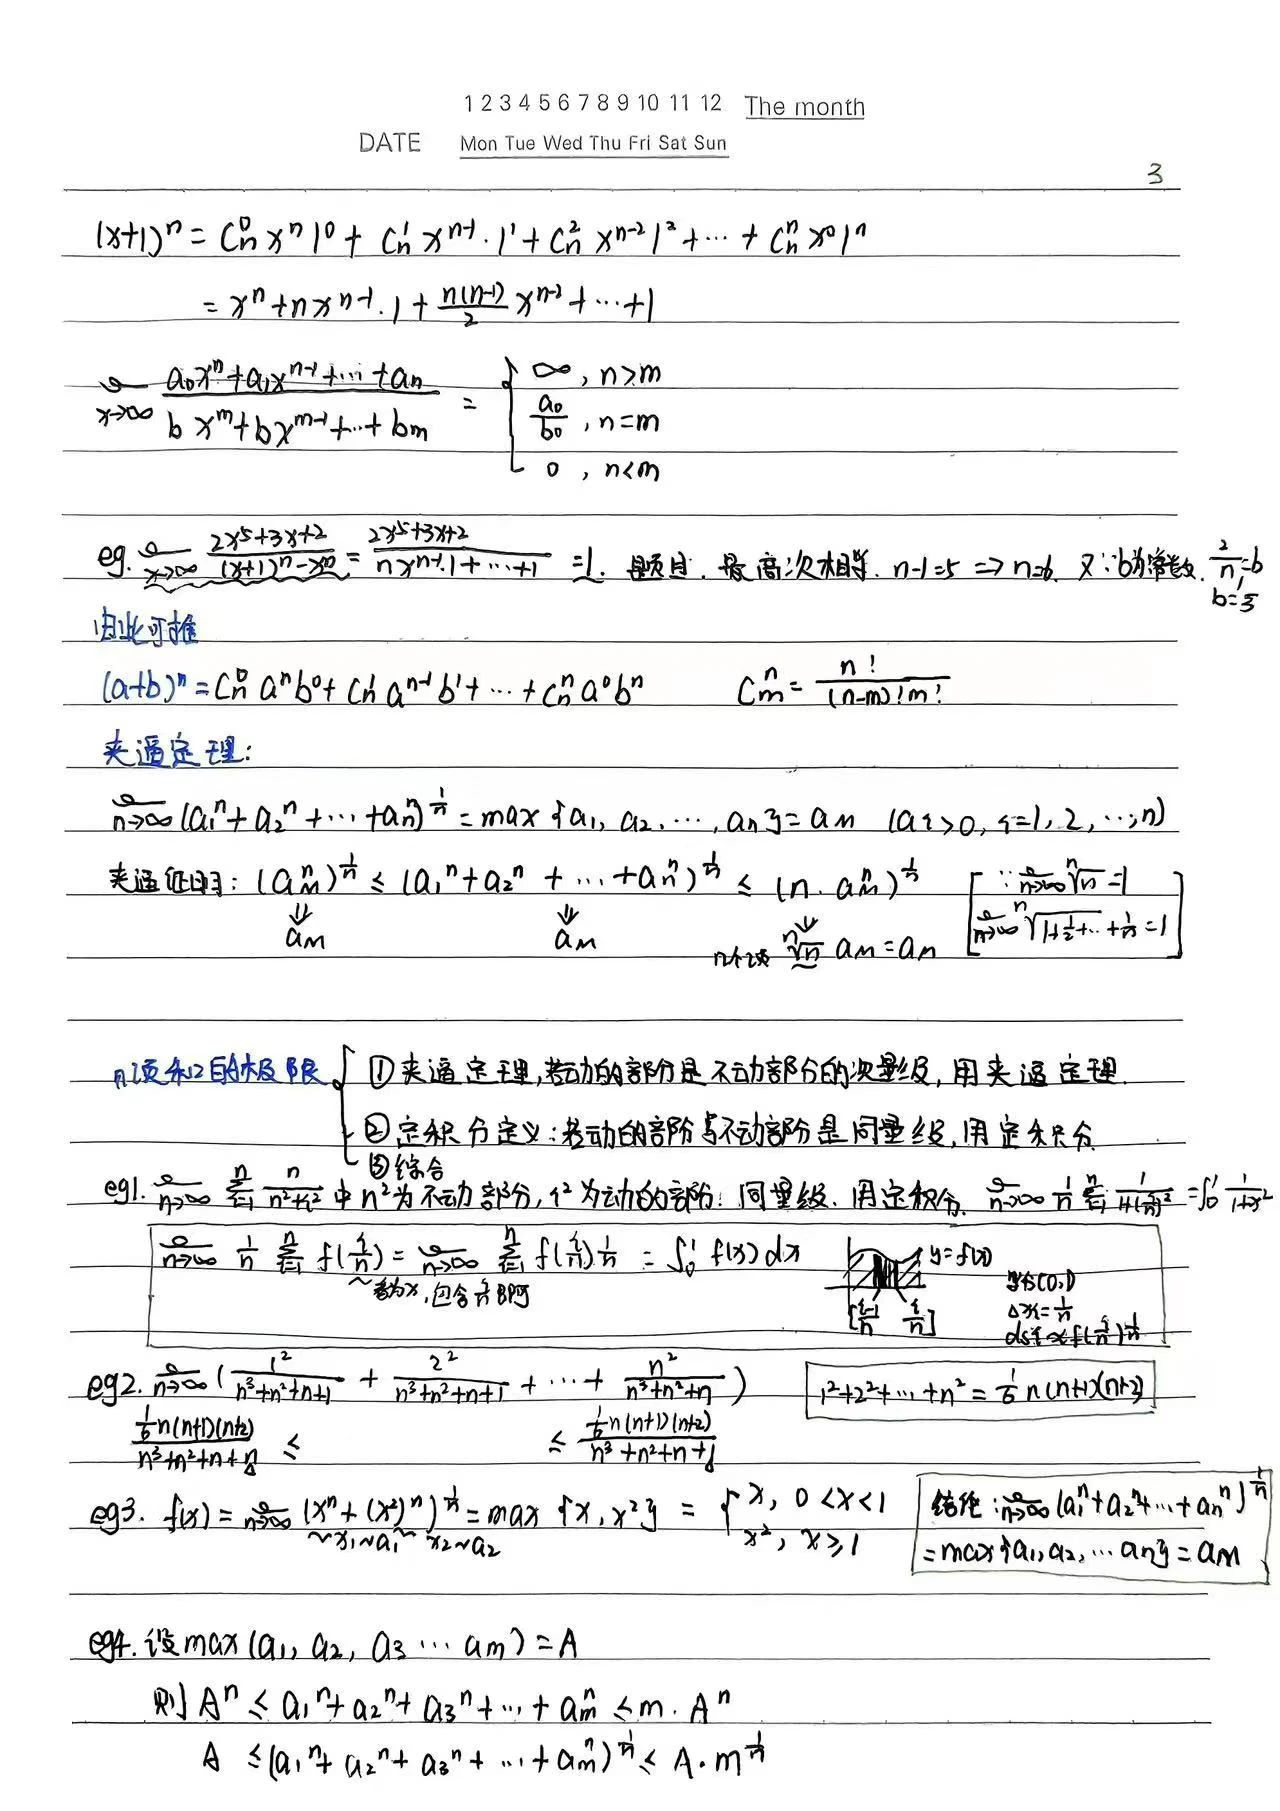 1 2 3 4 5 6 7 8 9 10 11 12 The month
DATE Mon Tue Wed Thu Fri Sat Sun
3
(x+1)ⁿ = Cₙ⁰ xⁿ 1⁰ + Cₙ¹ xⁿ⁻¹·1¹ + Cₙ² xⁿ⁻² 1² + ⋯ + Cₙⁿ x⁰ 1ⁿ
= xⁿ + n xⁿ⁻¹·1 + n(n-1)/2 xⁿ⁻² + ⋯ + 1
lim x→∞ (a₀xⁿ + a₁xⁿ⁻¹ + ⋯ + aₙ)/(b xᵐ + b xᵐ⁻¹ + ⋯ + bₘ) = { ∞, n>m
a₀/b₀, n=m
0, n<m
eg. lim x→∞ (2x⁵+3x+2)/((x+1)ⁿ-xⁿ) = (2x⁵+3x+2)/(n xⁿ⁻¹·1+⋯+1) =1. 题目. 最高次相等. n-1=5 ⇒ n=6. 又∵b为常数, 2/n=b
b=1/3
由此可推
(a+b)ⁿ = Cₙ⁰ aⁿb⁰ + Cₙ¹ aⁿ⁻¹b¹ + ⋯ + Cₙⁿ a⁰bⁿ Cₘⁿ = n!/((n-m)!m!)
夹逼定理:
lim n→∞ (a₁ⁿ + a₂ⁿ + ⋯ + aₙⁿ)^(1/n) = max{a₁, a₂, ⋯, aₙ} = aₘ (aᵢ>0, i=1, 2, ⋯, n)
夹逼证明: (aₘⁿ)^(1/n) ≤ (a₁ⁿ + a₂ⁿ + ⋯ + aₙⁿ)^(1/n) ≤ (n·aₘⁿ)^(1/n) [∵ lim n→∞ ⁿ√n = 1
⇓ aₘ ⇓ aₘ ⇓ ⁿ√n aₘ = aₘ lim n→∞ ⁿ√(1+1/2+⋯+1/n) = 1]
n项和的极限 { ① 夹逼定理, 若动的部分是不动部分的次量级, 用夹逼定理.
② 定积分定义: 若动的部分与不动部分是同量级, 用定积分
③ 综合
eg1. lim n→∞ Σ(i=1→n) n/(n²+i²) 中n²为不动部分, i²为动的部分. 同量级. 用定积分. lim n→∞ 1/n Σ(i=1→n) 1/(1+(i/n)²) = ∫₀¹ 1/(1+x²)
lim n→∞ 1/n Σ(i=1→n) f(i/n) = lim n→∞ Σ(i=1→n) f(i/n) 1/n = ∫₀¹ f(x) dx y=f(x)
看为x, 包含i/n即可 [(i-1)/n i/n] (0,1)
Δx=1/n
f(i/n) 1/n
eg2. lim n→∞ (1²/(n³+n²+n+1) + 2²/(n³+n²+n+1) + ⋯ + n²/(n³+n²+n)) 1²+2²+⋯+n² = 1/6 n(n+1)(n+2)
(1/6 n(n+1)(n+2))/(n³+n²+n+n) ≤ ≤ (1/6 n(n+1)(n+2))/(n³+n²+n+1)
eg3. f(x) = lim n→∞ (xⁿ + (x²)ⁿ)^(1/n) = max{x, x²} = { x, 0<x<1
x₁~a₁ x₂~a₂ x², x≥1
结论: lim n→∞ (a₁ⁿ + a₂ⁿ + ⋯ + aₙⁿ)^(1/n)
= max{a₁, a₂, ⋯ aₙ} = aₘ
eg4. 设max(a₁, a₂, a₃ ⋯ aₘ) = A
则 Aⁿ ≤ a₁ⁿ + a₂ⁿ + a₃ⁿ + ⋯ + aₘⁿ ≤ m·Aⁿ
A ≤ (a₁ⁿ + a₂ⁿ + a₃ⁿ + ⋯ + aₘⁿ)^(1/n) ≤ A·m^(1/n)